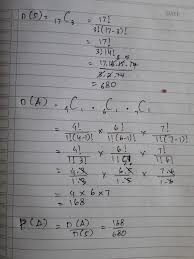 n(S) = 17C3 = 17! / 3!(17-3)!
= 17! / 3!14!
= 17.16.15.14 / 3.2.14
= 680
n(A) = 4C1 . 6C1 . 7C1
= 4! / 1!(4-1)! × 6! / 1!(6-1)! × 7! / 1!(7-1)!
= 4! / 1!3! × 6! / 1!5! × 7! / 1!6!
= 4 × 6 × 7
= 168
P(A) = n(A) / n(S) = 168 / 680